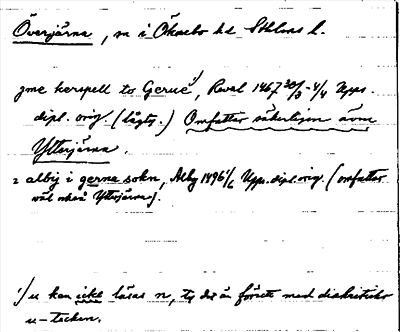 Överjärna, sn i Öknebo hd Sthlms l.
jme kerspell to Gerue¹⁾, Reval 1467 30/3-4/4 Upps.
dipl. orig. (lågty.) Omfattar säkerligen även
Ytterjärna.
2 alby i gerna sokn, Alby 1496 1/6 Upps. dipl. orig. (omfattar
väl också Ytterjärna).
¹⁾ u kan icke läsas n, ty det är försett med diakritiskt
u-tecken.